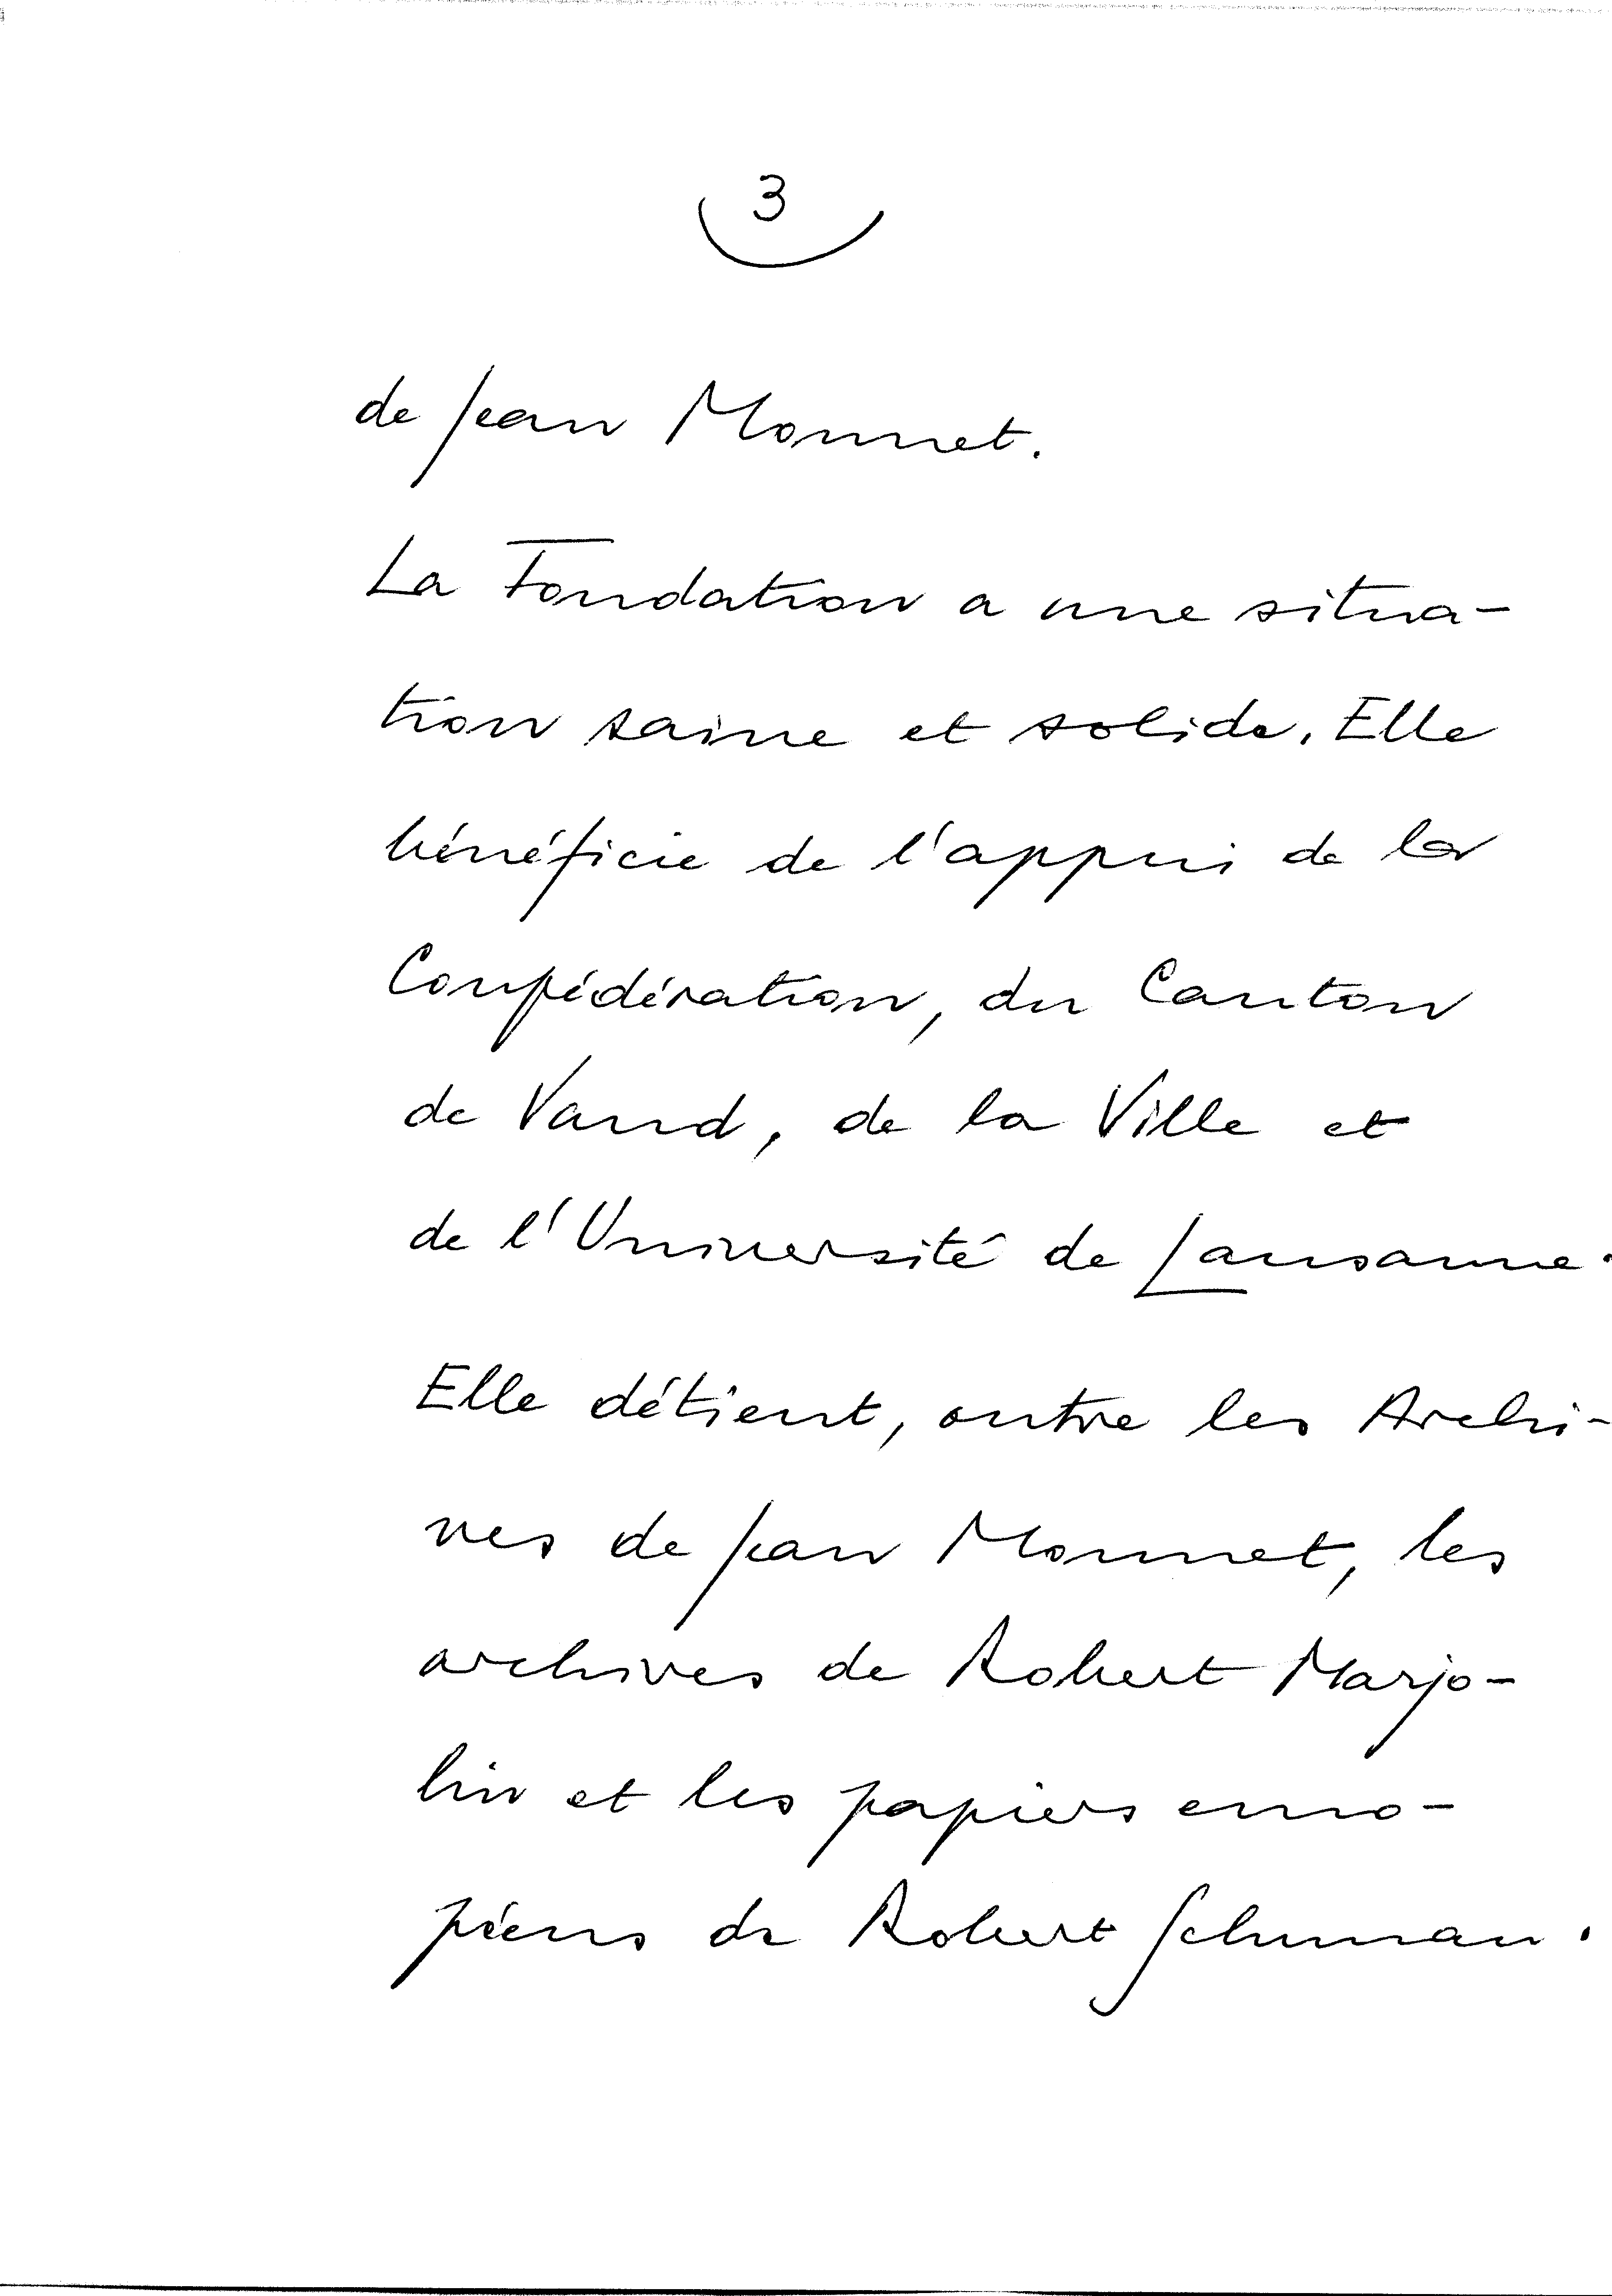 3
de Jean Monnet.
La Fondation a une situa-
tion saine et solide. Elle
bénéficie de l'appui de la
Confédération, du Canton
de Vaud, de la Ville et
de l'Université de Lausanne.
Elle détient, outre les Archi-
ves de Jean Monnet, les
archives de Robert Marjo-
lin et les papiers euro-
péens de Robert Schuman.